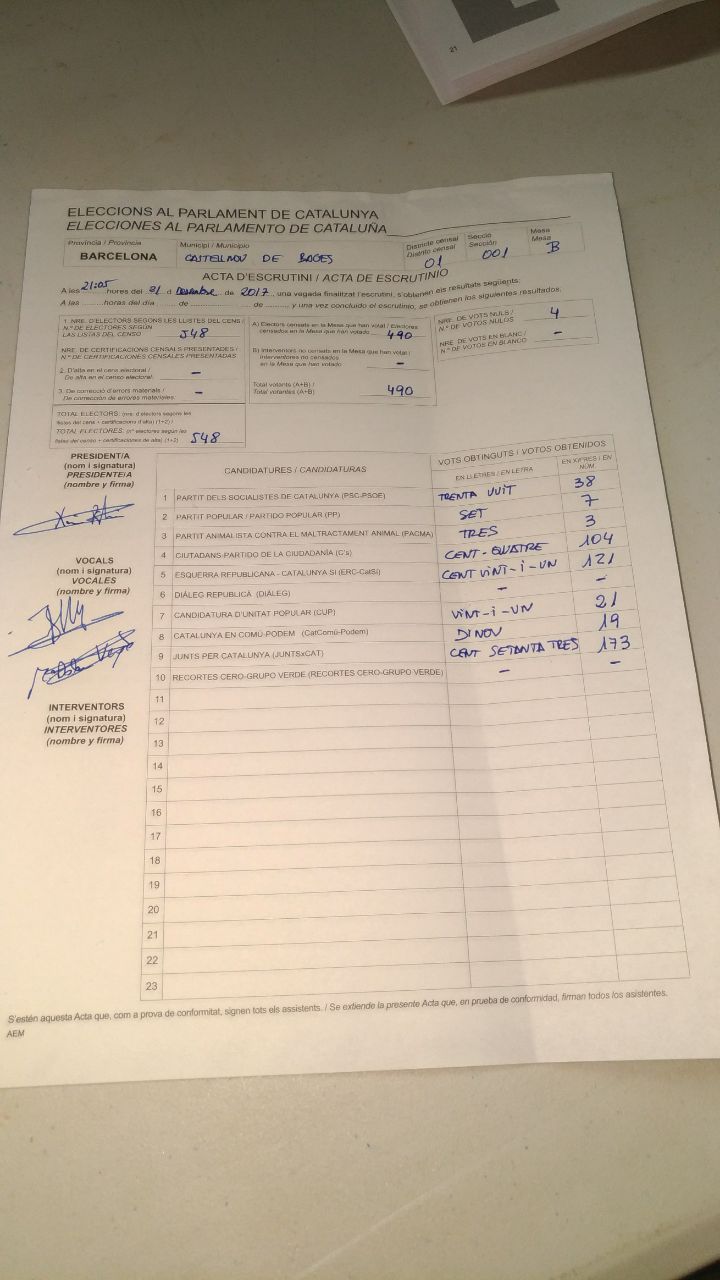 21
ELECCIONS AL PARLAMENT DE CATALUNYA
ELECCIONES AL PARLAMENTO DE CATALUÑA
Província / Provincia
BARCELONA
Municipi / Municipio
CASTELLNOU DE BAGES
Districte censal
Distrito censal
01
Secció
Sección
001
Mesa
Mesa
B
ACTA D'ESCRUTINI / ACTA DE ESCRUTINIO
A les 21:05 hores del 21 d Desembre de 2017, una vegada finalitzat l'escrutini, s'obtenen els resultats següents:
A las ........ horas del día ...... de ............ de ........., y una vez concluido el escrutinio, se obtienen los siguientes resultados:
1. NRE. D'ELECTORS SEGONS LES LLISTES DEL CENS /
N.º DE ELECTORES SEGÚN
LAS LISTAS DEL CENSO 548
NRE. DE CERTIFICACIONS CENSALS PRESENTADES /
N.º DE CERTIFICACIONES CENSALES PRESENTADAS
2. D'alta en el cens electoral /
De alta en el censo electoral: –
3. De correcció d'errors materials /
De corrección de errores materiales: –
TOTAL ELECTORS: (nre. d'electors segons les
llistes del cens + certificacions d'alta) (1+2) /
TOTAL ELECTORES: (nº electores según las
listas del censo + certificaciones de alta) (1+2) 548
A) Electors censats en la Mesa que han votat / Electores
censados en la Mesa que han votado 490
B) Interventors no censats en la Mesa que han votat /
Interventores no censados
en la Mesa que han votado –
Total votants (A+B) /
Total votantes (A+B) 490
NRE. DE VOTS NULS /
N.º DE VOTOS NULOS 4
NRE. DE VOTS EN BLANC /
N.º DE VOTOS EN BLANCO –
PRESIDENT/A
(nom i signatura)
PRESIDENTE/A
(nombre y firma)
VOCALS
(nom i signatura)
VOCALES
(nombre y firma)
INTERVENTORS
(nom i signatura)
INTERVENTORES
(nombre y firma)
CANDIDATURES / CANDIDATURAS
VOTS OBTINGUTS / VOTOS OBTENIDOS
EN LLETRES / EN LETRA
EN XIFRES / EN NÚM.
1 PARTIT DELS SOCIALISTES DE CATALUNYA (PSC-PSOE) TRENTA VUIT 38
2 PARTIT POPULAR / PARTIDO POPULAR (PP) SET 7
3 PARTIT ANIMALISTA CONTRA EL MALTRACTAMENT ANIMAL (PACMA) TRES 3
4 CIUTADANS-PARTIDO DE LA CIUDADANÍA (C's) CENT-QUATRE 104
5 ESQUERRA REPUBLICANA - CATALUNYA SÍ (ERC-CatSí) CENT VINT-I-UN 121
6 DIÀLEG REPUBLICÀ (DIÀLEG) – –
7 CANDIDATURA D'UNITAT POPULAR (CUP) VINT-I-UN 21
8 CATALUNYA EN COMÚ-PODEM (CatComú-Podem) DINOU 19
9 JUNTS PER CATALUNYA (JUNTSxCAT) CENT SETANTA TRES 173
10 RECORTES CERO-GRUPO VERDE (RECORTES CERO-GRUPO VERDE) – –
11
12
13
14
15
16
17
18
19
20
21
22
23
S'estén aquesta Acta que, com a prova de conformitat, signen tots els assistents. / Se extiende la presente Acta que, en prueba de conformidad, firman todos los asistentes.
AEM